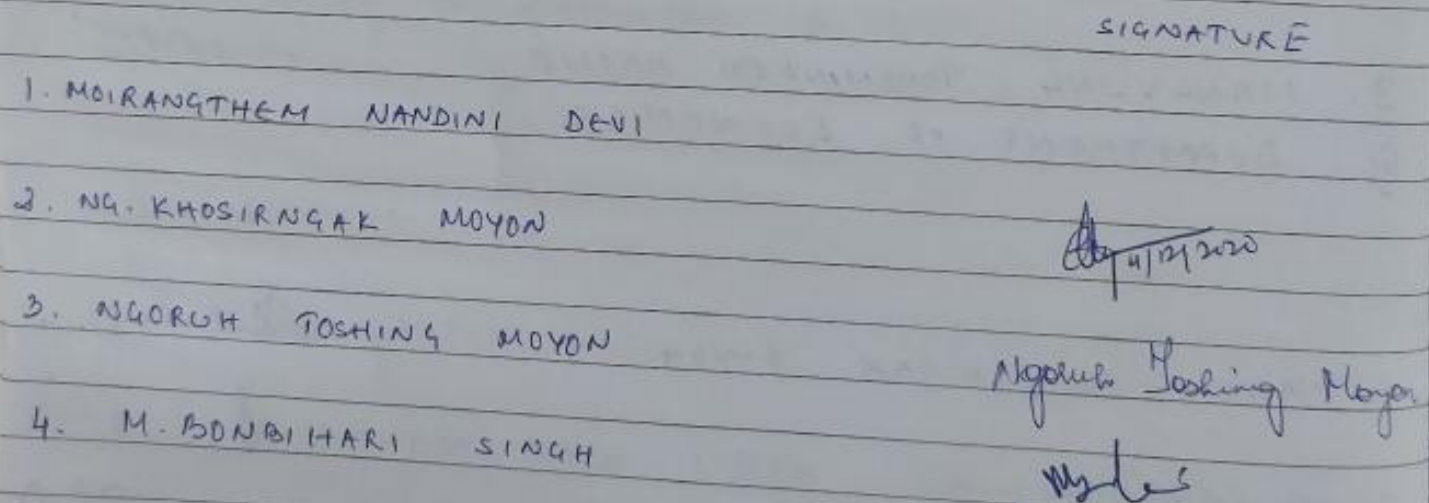 SIGNATURE
1. MOIRANGTHEM NANDINI DEVI
2. NG. KHOSIRNGAK MOYON
4/12/2020
3. NGORUH TOSHING MOYON
Ngoruh Toshing Moyon
4. M. BONBIHARI SINGH